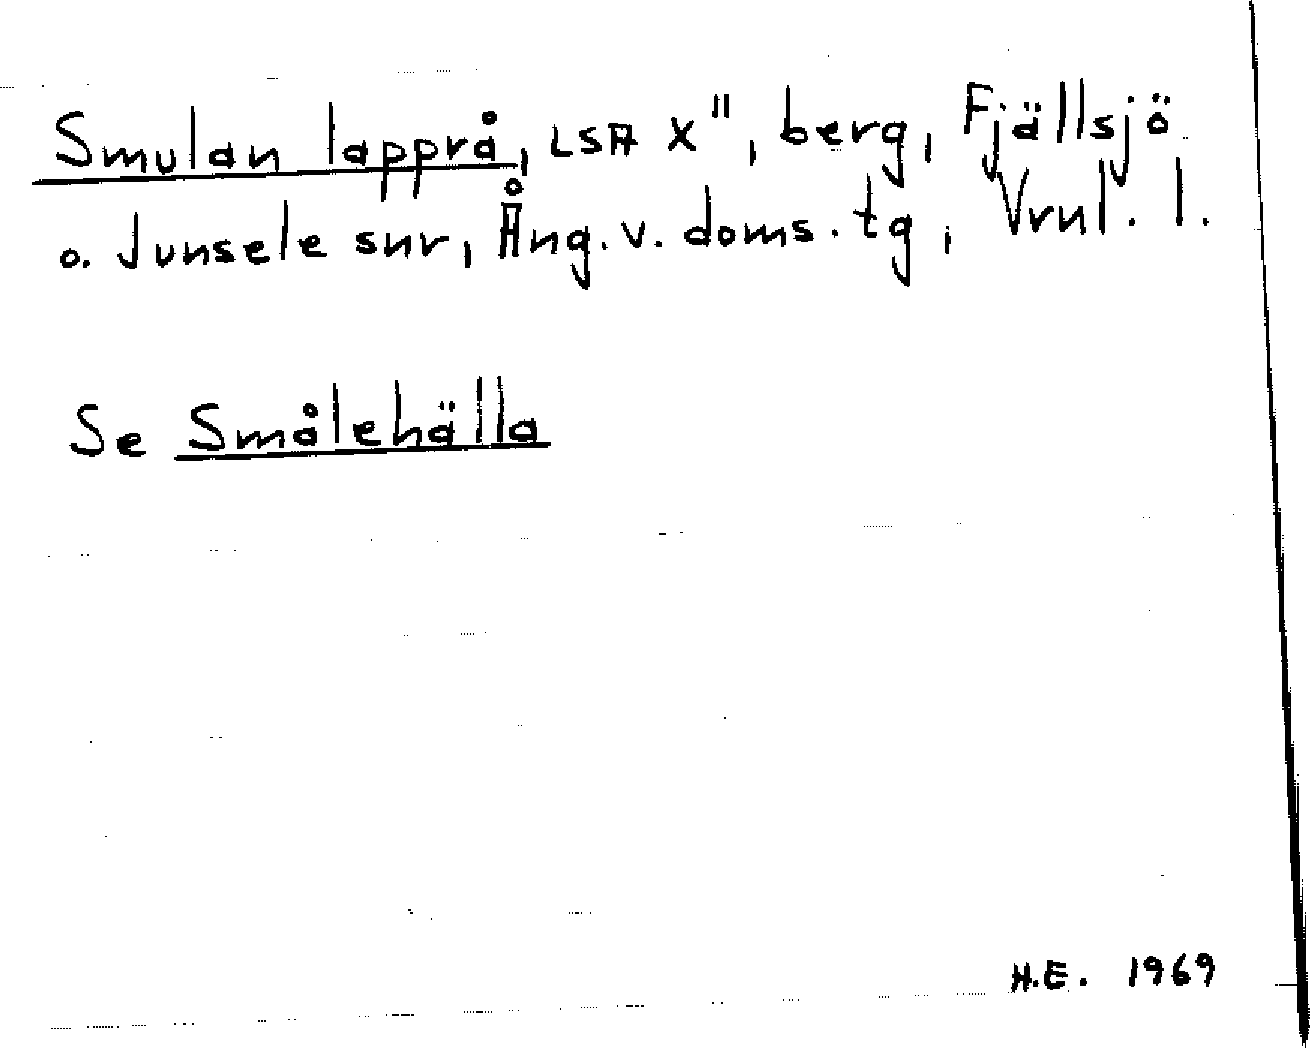 Smulan lapprå, LSA X", berg, Fjällsjö
o. Junsele snr, Ång. v. doms. tg, Vrnl. l.
Se Smålehälla
H.E. 1969